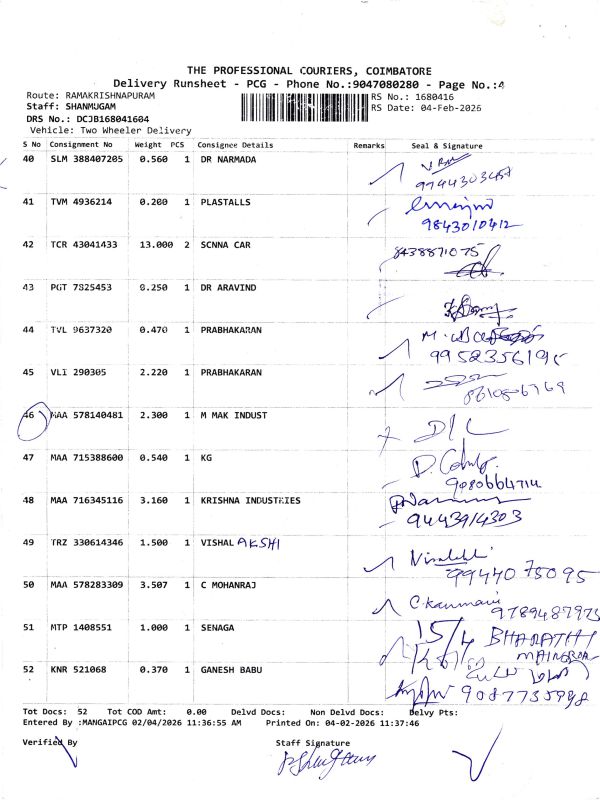 THE PROFESSIONAL COURIERS, COIMBATORE
Delivery Runsheet - PCG - Phone No.:9047080280 - Page No.:4
Route: RAMAKRISHNAPURAM
RS No.: 1680416
Staff: SHANMUGAM
RS Date: 04-Feb-2026
DRS No.: DCJB168041604
Vehicle: Two Wheeler Delivery
S No Consignment No Weight PCS Consignee Details Remarks Seal & Signature
40 SLM 388407205 0.560 1 DR NARMADA
41 TVM 4936214 0.200 1 PLASTALLS
9843010412
42 TCR 43041433 13.000 2 SCNNA CAR
8438871075
43 PGT 7825453 0.250 1 DR ARAVIND
44 TVL 9637320 0.470 1 PRABHAKARAN
45 VLI 290305 2.220 1 PRABHAKARAN
46 MAA 578140481 2.300 1 M MAK INDUST D/L
47 MAA 715388600 0.540 1 KG
9080664714
48 MAA 716345116 3.160 1 KRISHNA INDUSTRIES
9443914303
49 TRZ 330614346 1.500 1 VISHAL AKSHI
9944075095
50 MAA 578283309 3.507 1 C MOHANRAJ
51 MTP 1408551 1.000 1 SENAGA 15/4 BHARATHI
52 KNR 521068 0.370 1 GANESH BABU
Tot Docs: 52 Tot COD Amt: 0.00 Delvd Docs: Non Delvd Docs: Delvy Pts:
Entered By :MANGAIPCG 02/04/2026 11:36:55 AM Printed On: 04-02-2026 11:37:46
Verified By Staff Signature